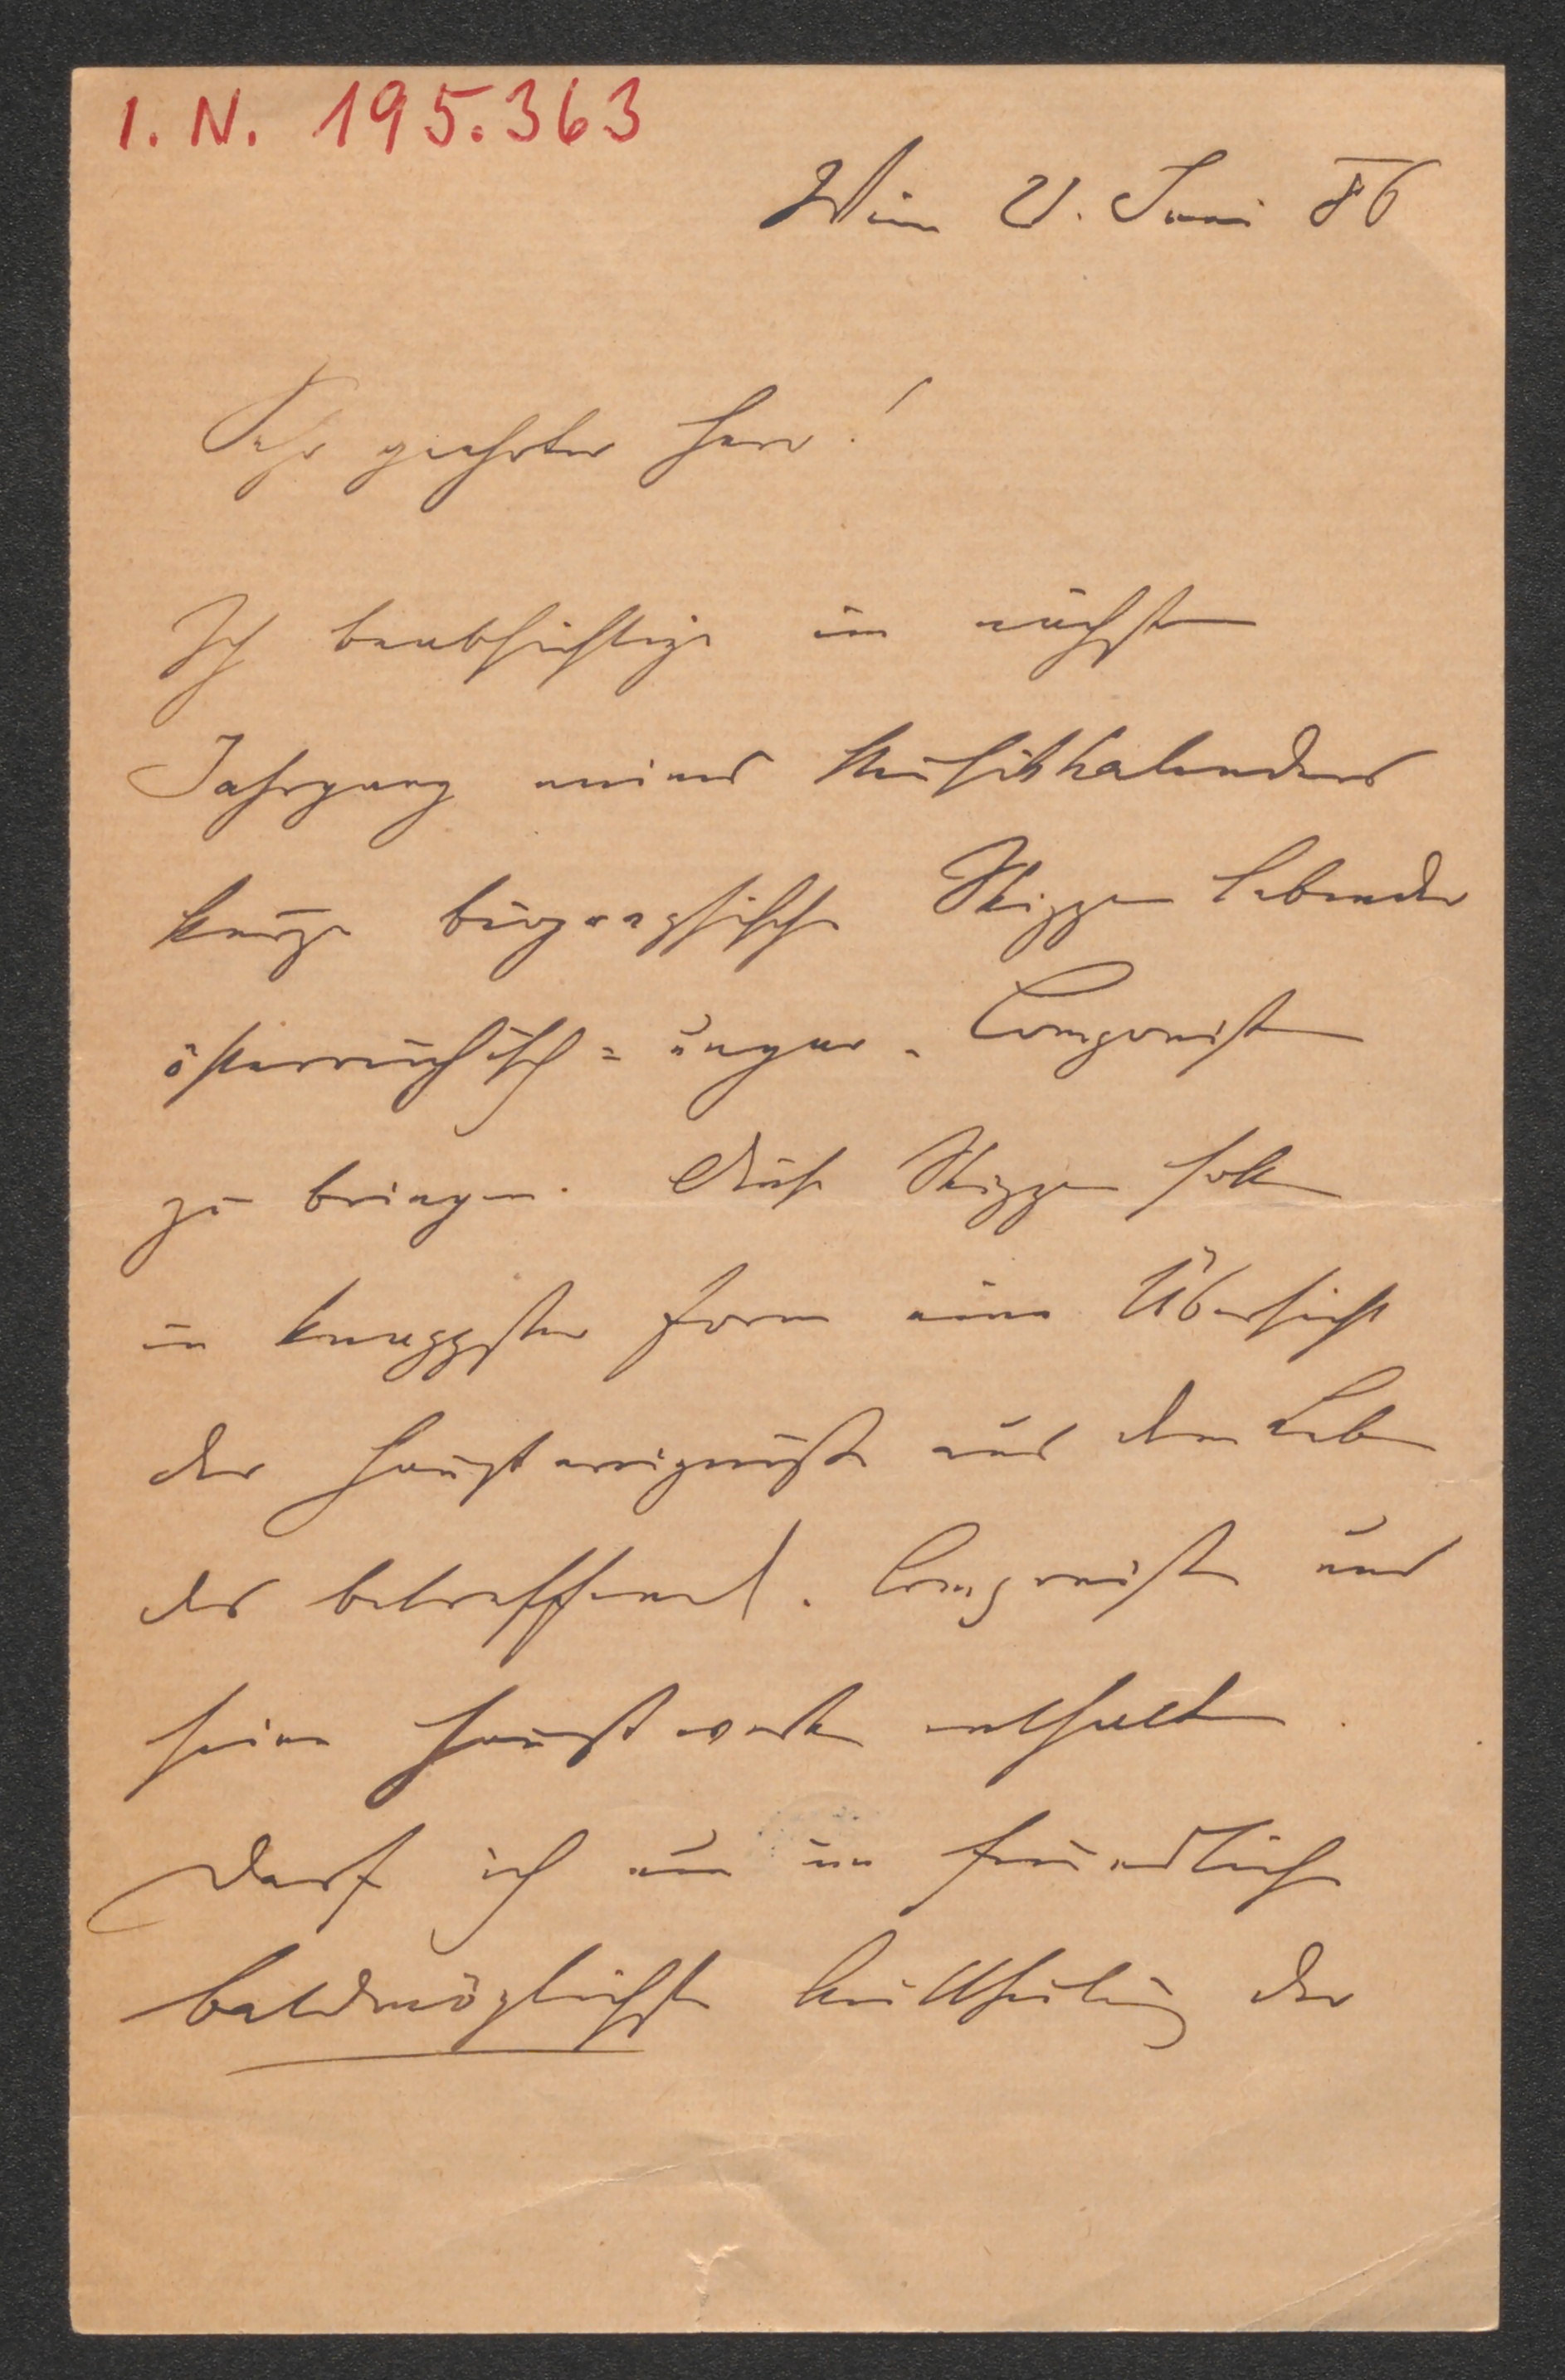 I. N. 195.363
Wien 21. Juni 86
Sehr geehrter Herr!
Ich beabsichtige im nächsten
Jahrgang meines Musikkalenders
kurze biographische Skizzen lebender
österreichisch=ungar. Componisten
zu bringen. Diese Skizzen sollen
in knappster Form eine Übersicht
der Hauptereignisse aus dem Leben
des betreffend. Componisten und
seine Hauptwerke enthalten.
Darf ich nun um freundliche
baldmöglichste Mittheilung der